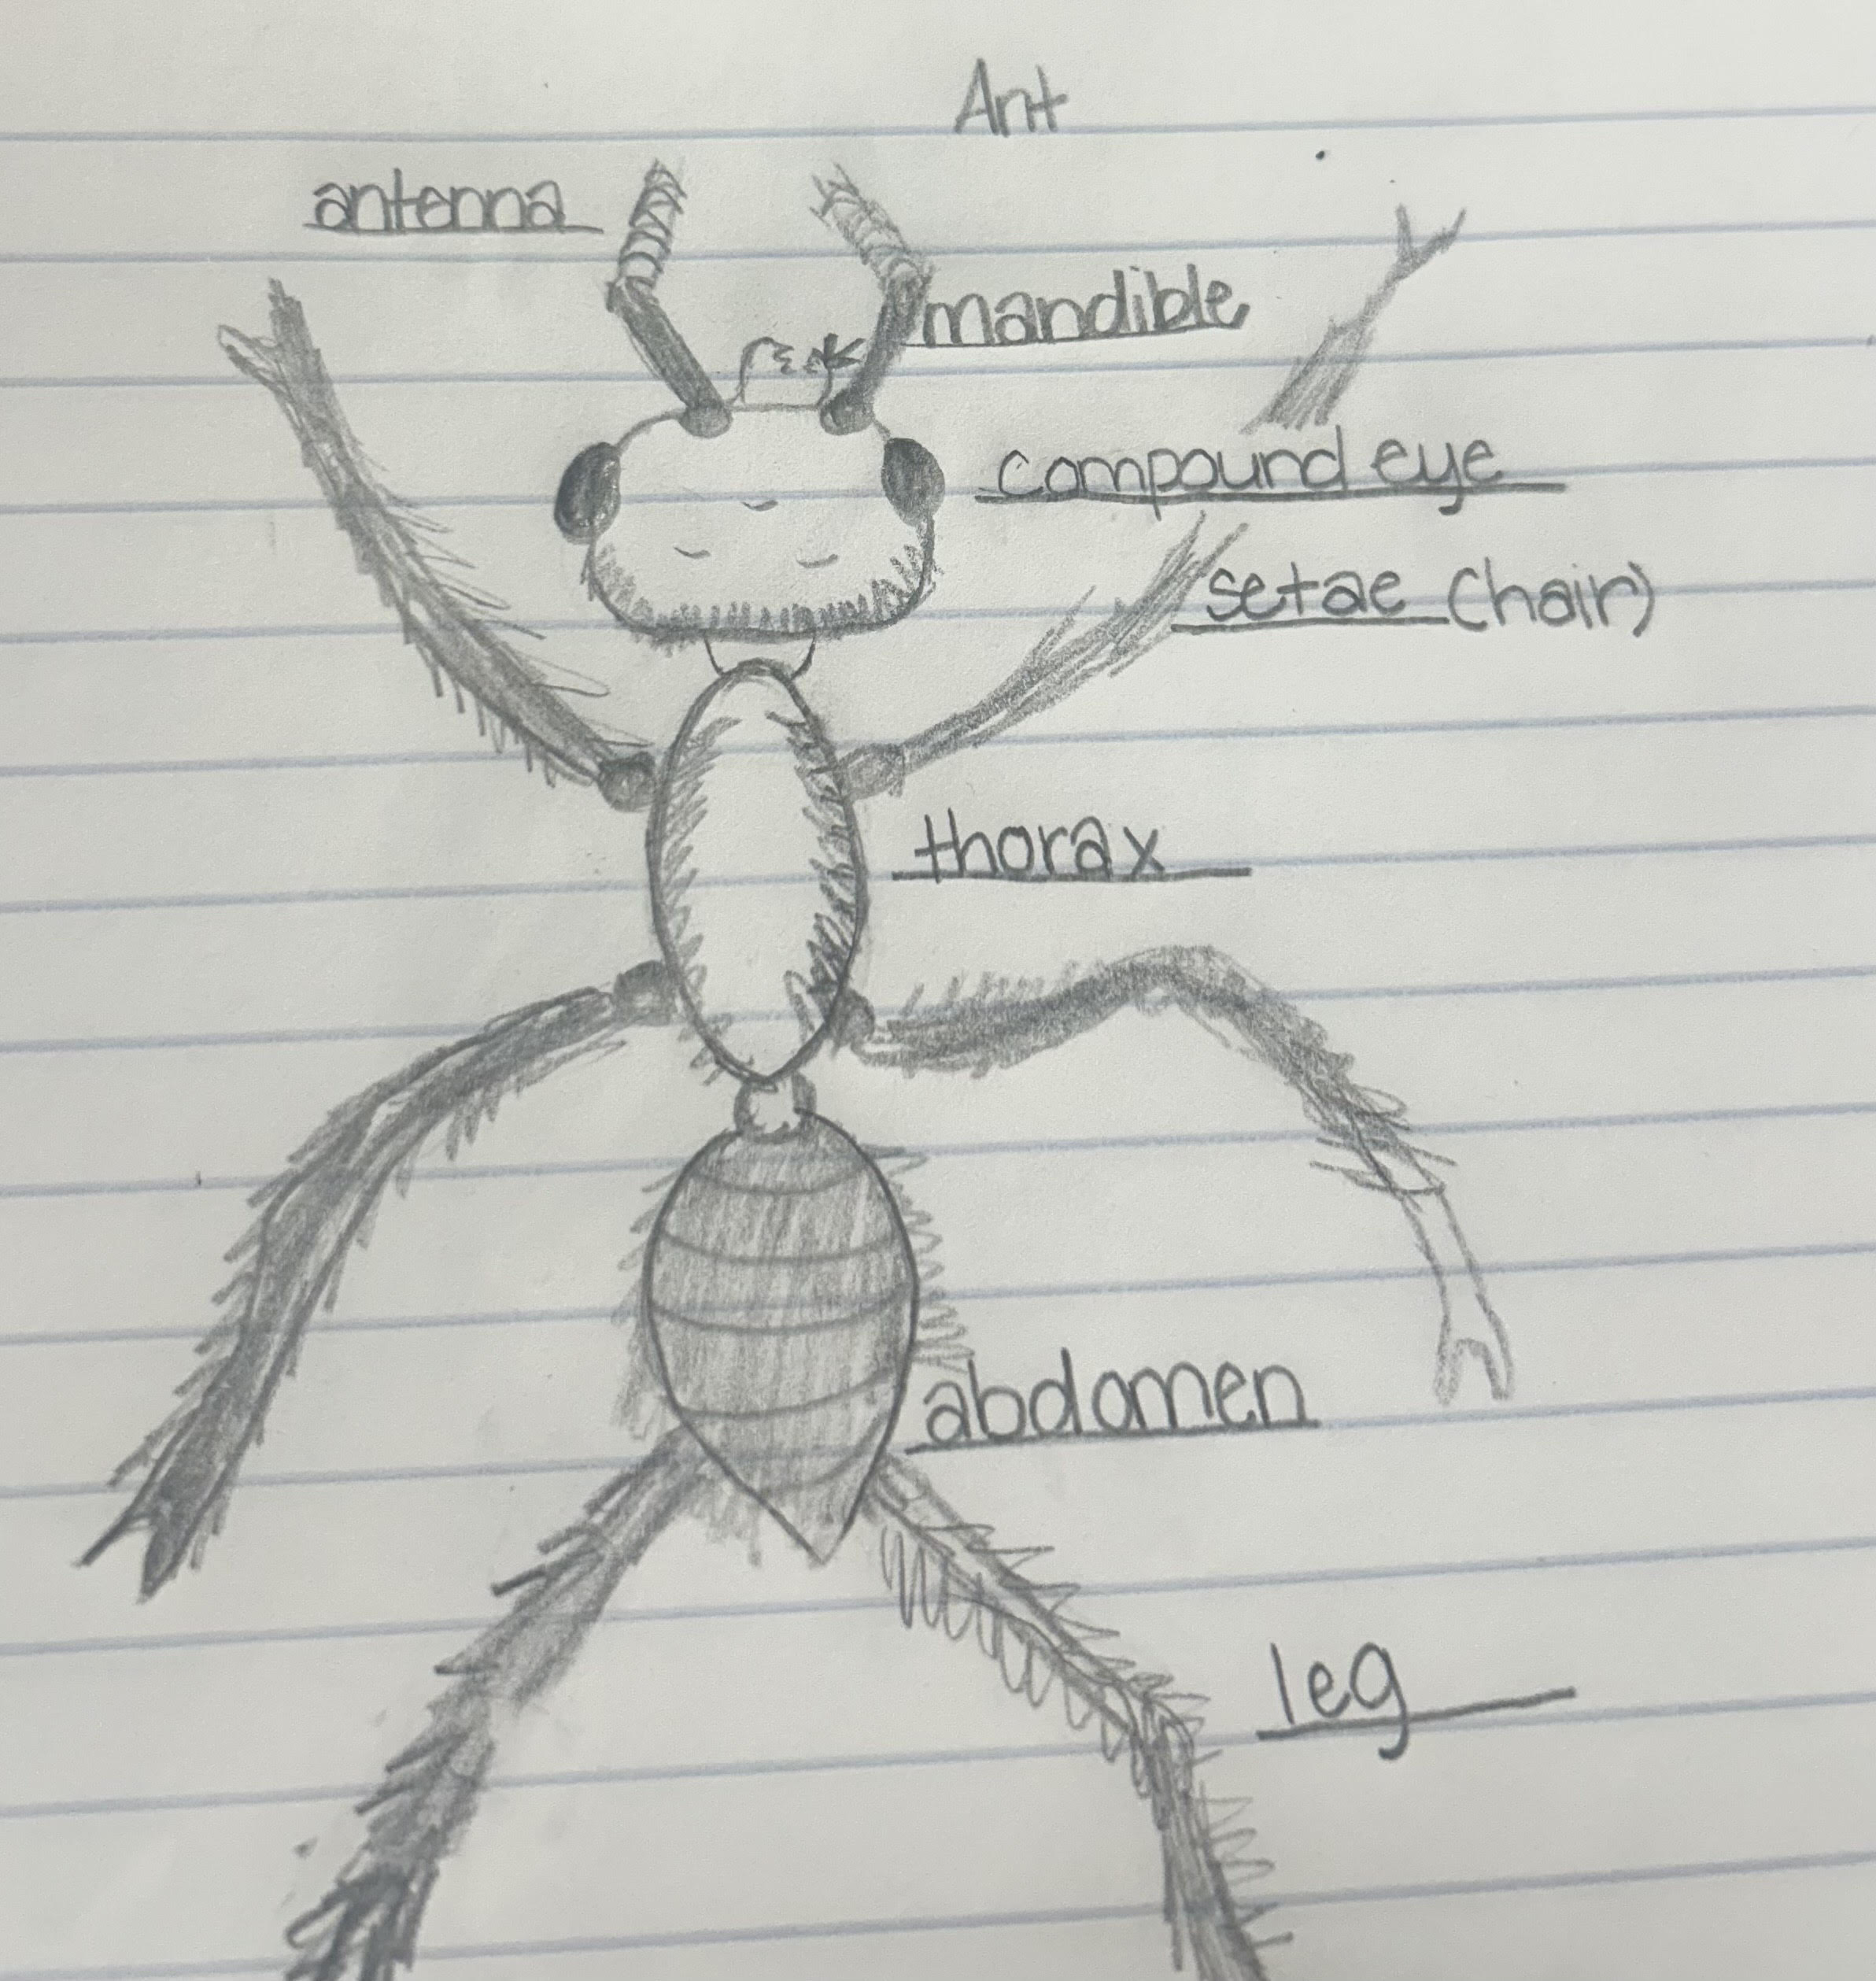 Ant
antenna
mandible
compound eye
setae (hair)
thorax
abdomen
leg